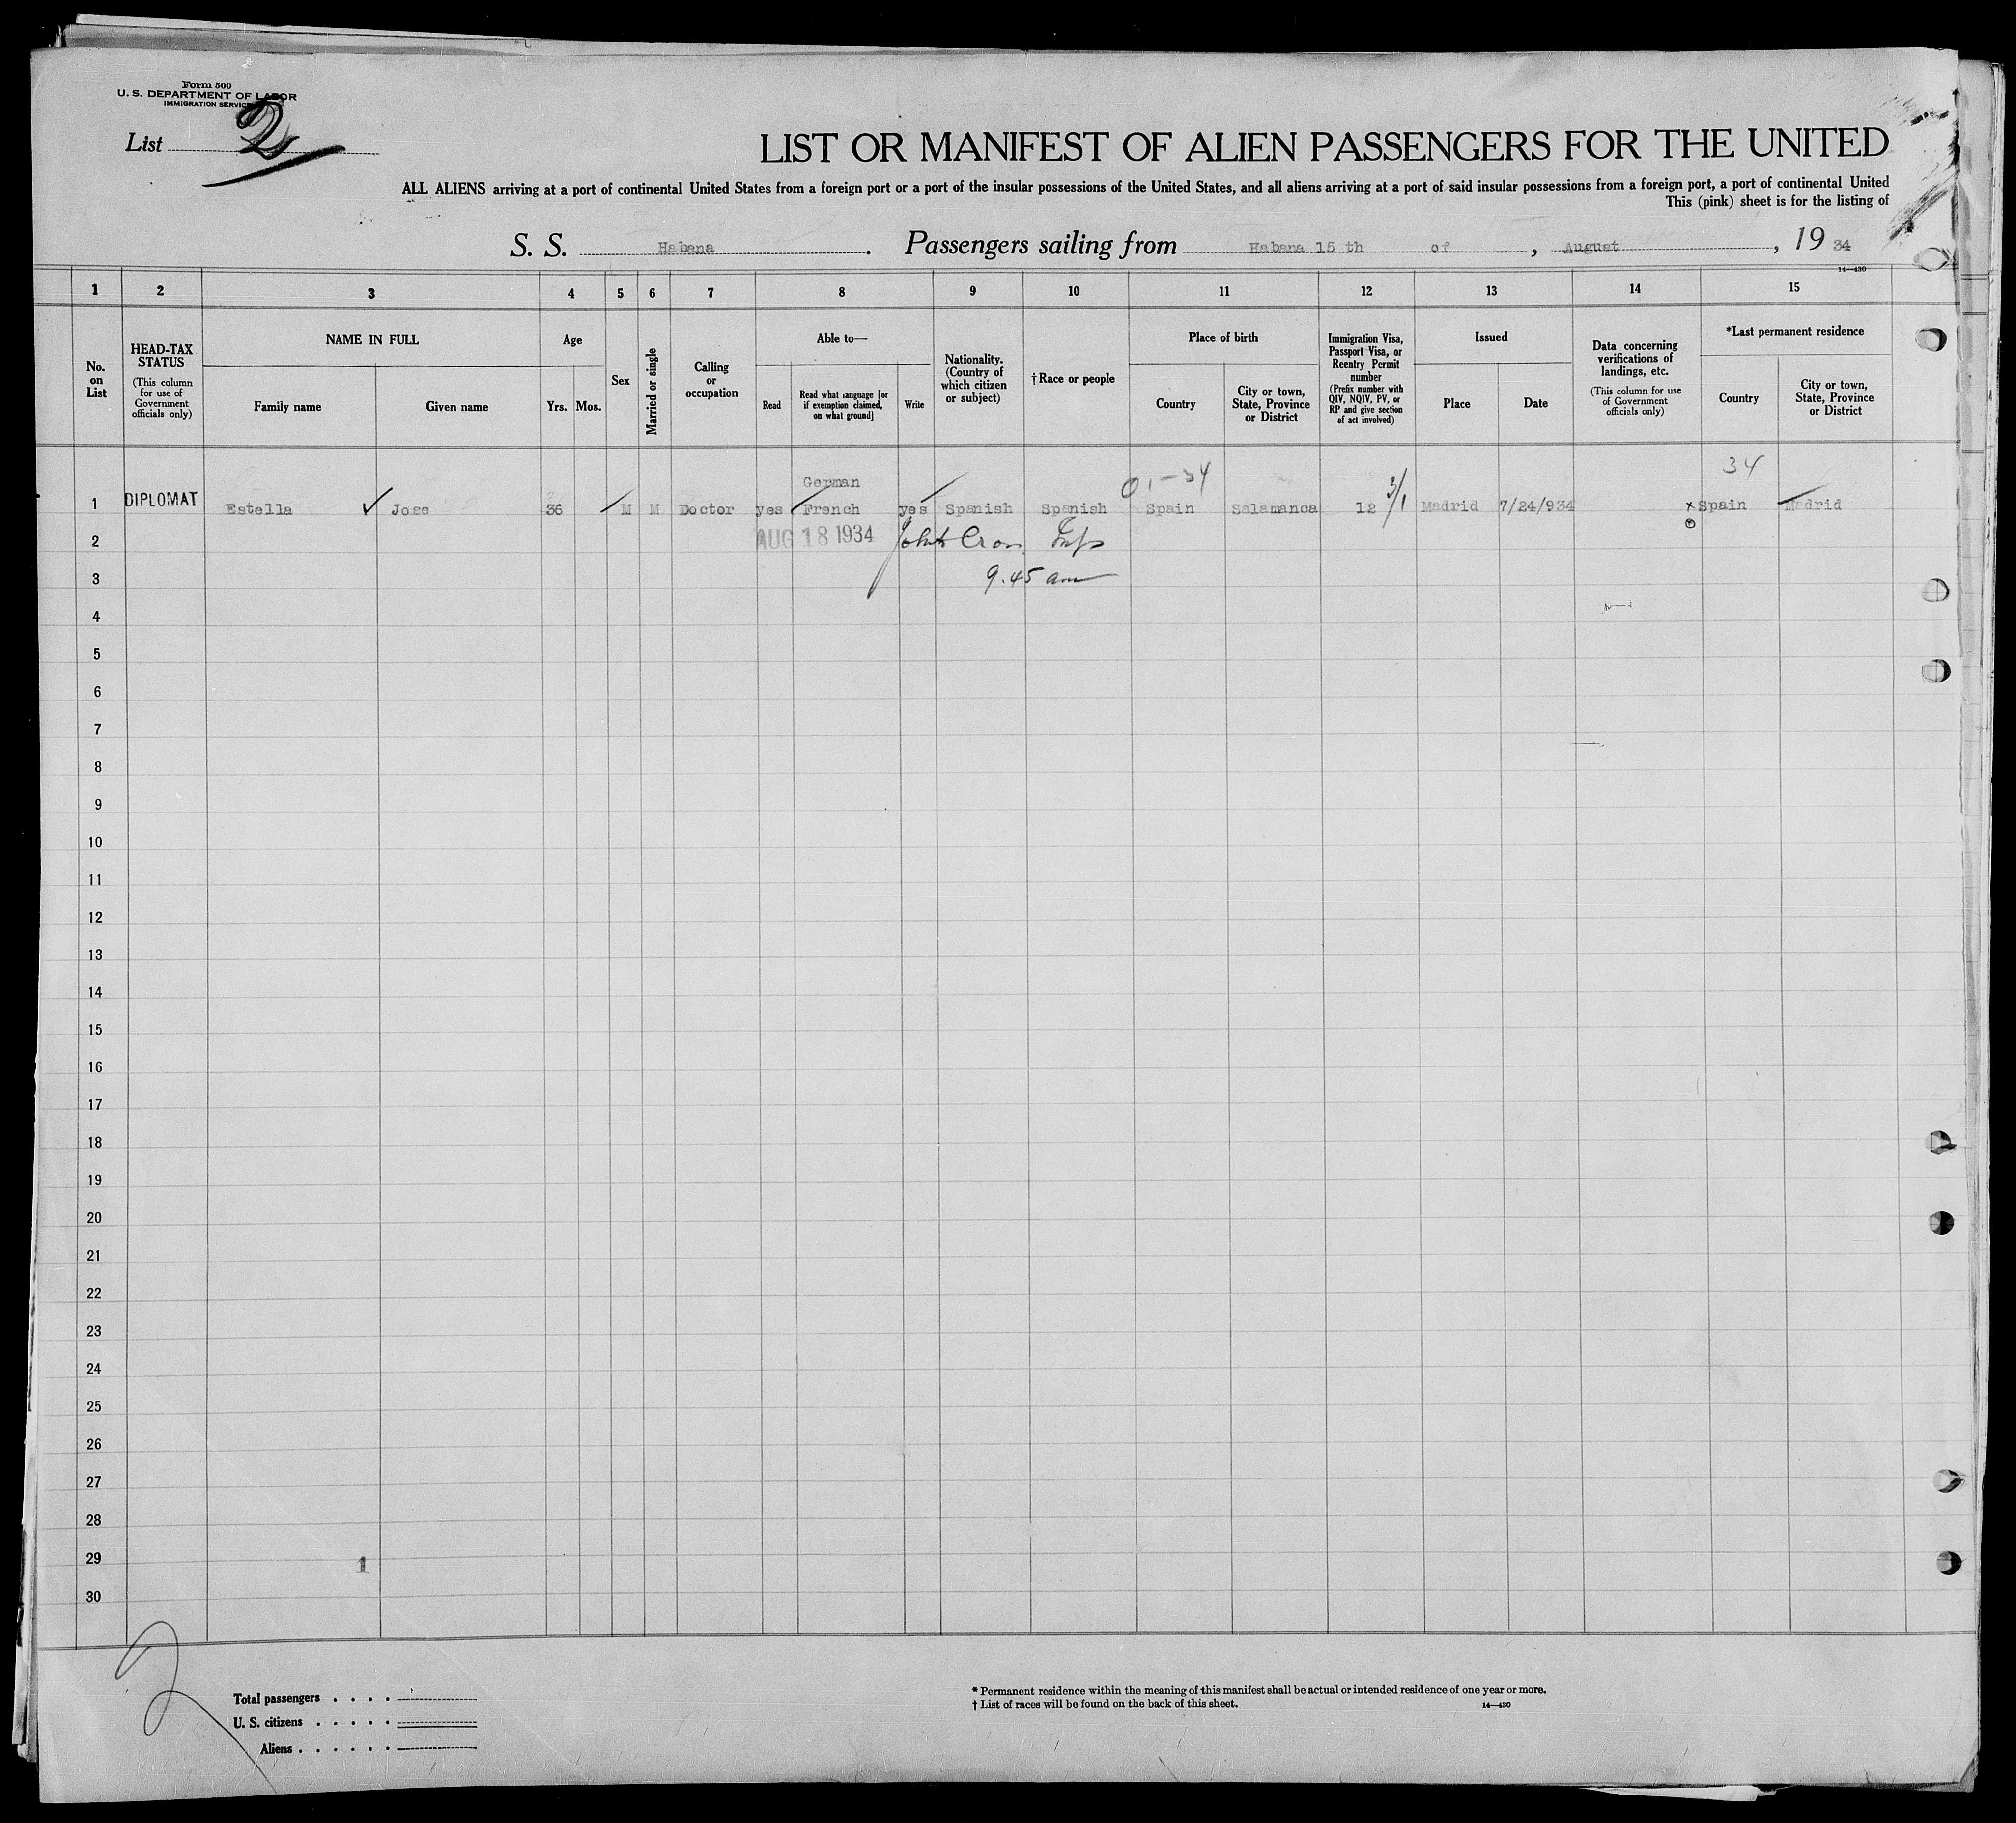 Form 500
U. S. DEPARTMENT OF LABOR
IMMIGRATION SERVICE
List 2
LIST OR MANIFEST OF ALIEN PASSENGERS FOR THE UNITED
ALL ALIENS arriving at a port of continental United States from a foreign port or a port of the insular possessions of the United States, and all aliens arriving at a port of said insular possessions from a foreign port, a port of continental United
This (pink) sheet is for the listing of
S. S. Habana. Passengers sailing from Habana 15 th of, August, 19 34
14—430
1 2 3 4 5 6 7 8 9 10 11 12 13 14 15
No. on List
HEAD-TAX STATUS (This column for use of Government officials only)
NAME IN FULL
Family name Given name
Age
Yrs. Mos.
Sex
Married or single
Calling or occupation
Able to—
Read Read what language [or if exemption claimed, on what ground] Write
Nationality. (Country of which citizen or subject)
†Race or people
Place of birth
Country City or town, State, Province or District
Immigration Visa, Passport Visa, or Reentry Permit number (Prefix number with QIV, NQIV, PV, or RP and give section of act involved)
Issued
Place Date
Data concerning verifications of landings, etc. (This column for use of Government officials only)
*Last permanent residence
Country City or town, State, Province or District
34
German
1 DIPLOMAT Estella ✓ Jose 36 M M Doctor yes French yes Spanish Spanish Spain Salamanca 12 3/1 Madrid 7/24/934 x Spain Madrid
2 AUG 18 1934 John Cron
3 9.45 am
4
5
6
7
8
9
10
11
12
13
14
15
16
17
18
19
20
21
22
23
24
25
26
27
28
29 1
30
2
Total passengers . . . .
U. S. citizens . . . . .
Aliens . . . . . .
* Permanent residence within the meaning of this manifest shall be actual or intended residence of one year or more.
† List of races will be found on the back of this sheet. 14—430